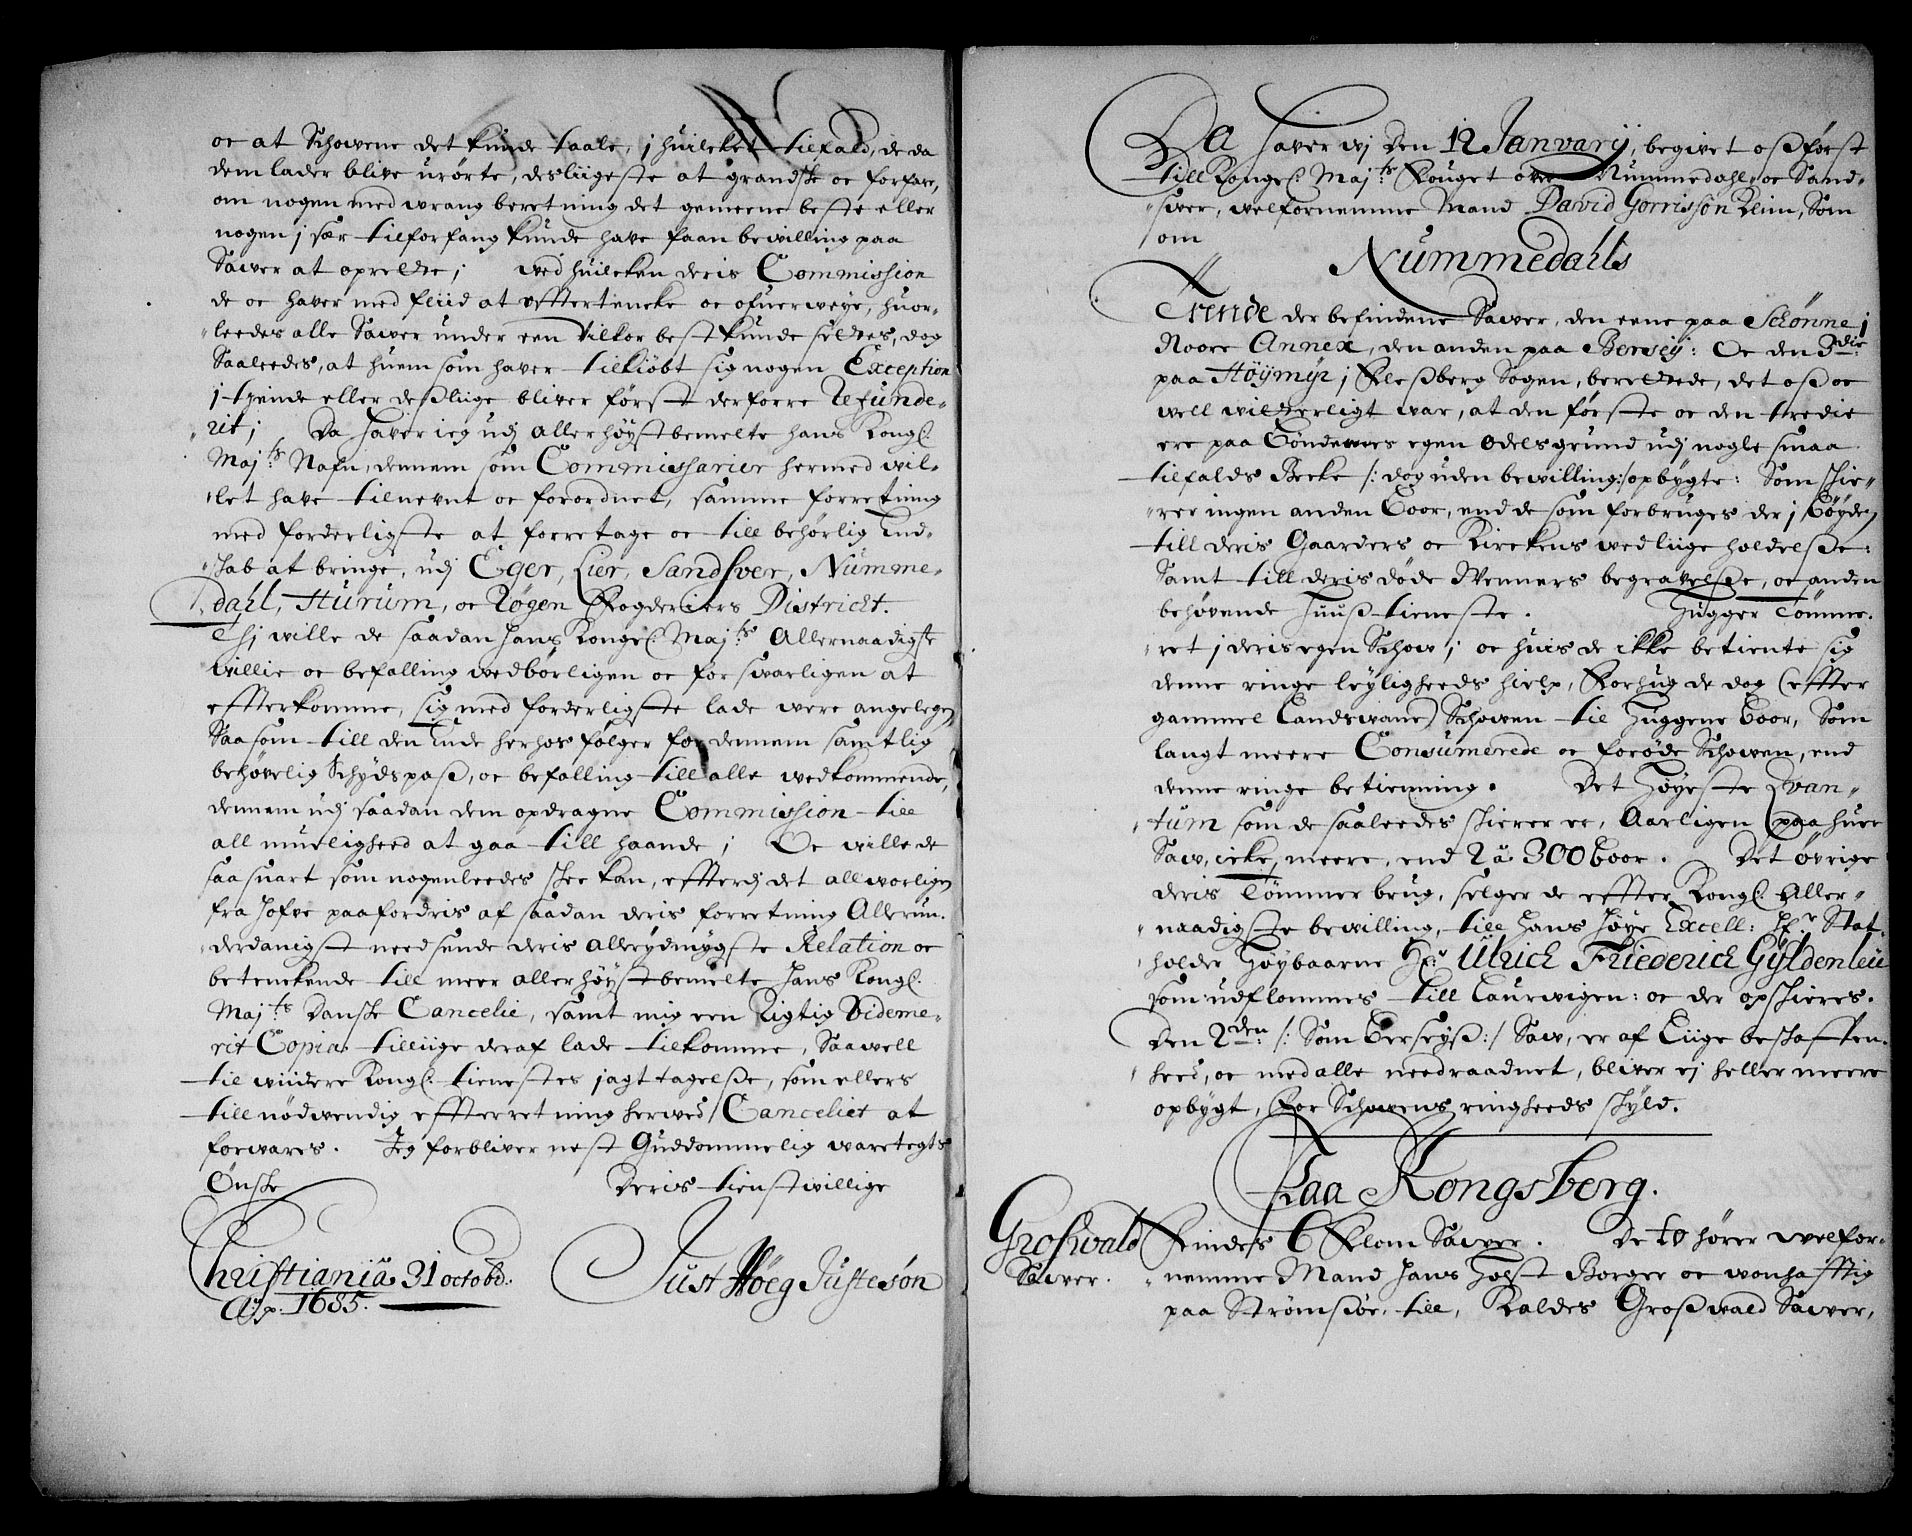 oc at Schowene det kunde taale, j huilcket tilfald, de da
dem lader blive urørte, desliigeste at grandske oc forfare,
om nogen med wrang beretning det gemeene beste eller
nogen j sær til forfang kunde have faaen bewilling paa
Sawer at oprette; ved huilcken deris Commission
de oc haver med fliid at efftertencke oc ofuerweye, huor-
leedes alle Sawer under een vilkor best kunde settes, dog
Saaleedes, at huem som haver tilkiøbt sig nogen Exception
j tiende eller desliige bliver først derforre Refunde-
rit; Da haver ieg udj allerhøystbemelte hans Kongl:
Maj:ts Nafn, dennem som Commissarier hermed wil-
let have tilnevnt oc forordnet, samme forretning
med forderligste at forretage oc till behørlig End-
skab at bringe, udj Eger, Lier, Sandsver, Numme-
dahl, Hurum, oc Røgen Fogderiers District.
Thj wille de saadan hans Kongel: Maj:ts Allernaadigste
willie oc befalling wedbørligen oc forswarligen at
effterkomme, sig med forderligste lade were angelegen
Saasom till den Ende herhos følger for dennem samtlig
behøvelig Schydspass, oc befalling till alle wedkommende,
dennem udj saadan dem opdragne Commission till
all muelighed at gaa till haande; Oc wille de
saa snart som nogenleedes skee kan, effterdj det allworligen
fra Hofve paafordris af saadan deris forretning Allerun-
derdanigst needsende deris allerydmygste Relation oc
betenckende till meer allerhøystbemelte Hans Kongl:
Maj:ts Danske Cancelie, samt mig een Rigtig Videme-
rit Copia tilliige deraf lade tilkomme, Saawell
til wiidere Kongl: tienestes jagttagelse, som ellers
till nødwendig effterretning herwed Canceliet at
forwares. Jeg forbliver nest Guddommelig waretegts
Ønske Deris tienstwillige
Christiania 31 octobr: Just Høeg Justesøn
Ao. 1685.
Da haver wj Den 12 Januarij, begivet oss først
till Kongel: Maj:ts Fouget over Nummedahl oc Sand-
swer, welfornemme Mand David Gorrissøn Kleim, Som
om
Nummedahls
Trende der befindene Sawer, den eene paa Schønne j
Noore Annex, den anden paa Bersey: Oc den 3die
paa Høymyr j Flessberg Sogen, berettede, det oss oc
well witterligt war, at den første oc den tredie
ere paa Bøndernes egen Odelsgrund udj nogle smaa
tilfalds Becke /: dog uden bewilling:/ opbygte: Som skie-
rer ingen anden Boor, end de som forbruges der j Bøyden
till deris Gaarders oc Kirckens wedliige holdelsse:
Samt till deris døde Wenners begravelsse, oc anden
behøvende Huuss tieneste. Hugger Tømme-
ret j deris egen Schow; oc huis de ikke betiente sig
denne ringe leyligheeds hielp, Forhug de dog (effter
gammel Landswane) Schowen til Huggene Boor, Som
langt meere Consumerede oc forøde Schowen, end
denne ringe betienning. Det Høyeste Qvan-
tum som de saaleedes skierer er, Aarligen paa huer
Saw, icke meere, end 2 à 300 boor. Det øvrige
deris Tømmerbrug, selger de effter Kongl: Aller-
naadigste bewilling, till Hans Høye Excell: Hr. Stat-
holder Høybaarne Hr: Ulrich Friederich Gyldenleu
som udflommes till Laurwigen: oc der opskieres.
Den 2den /: Som Berseyss:/ Saw, er af Liige beskaffen-
heed, oc med alle needraadnet, bliver ej heller meere
opbygt, for Schowens ringheeds skyld.
Paa Kongsberg.
Groswald Findes 6 Flom Sawer. De to hører welfor-
Sawer. nemme Mand Hans Holst Borger oc wonhafftig
paa Strømsøe, till, Kaldes Grosswald Sawer,